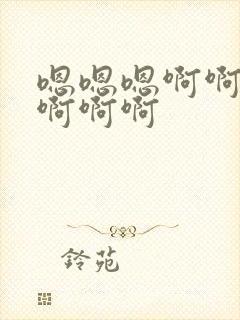 嗯嗯嗯啊啊
啊啊啊
铃苑